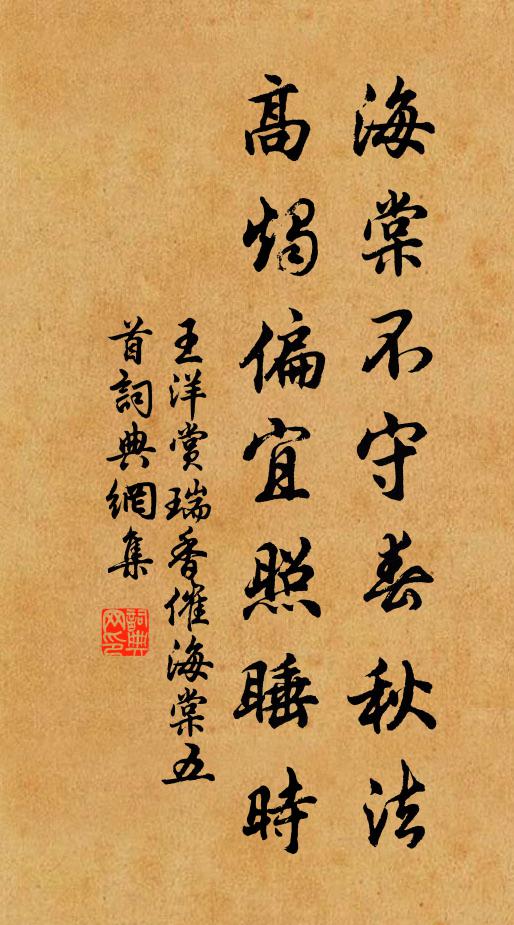 海棠不守春秋法
高燭偏宜照睡時
王洋賞瑞香催海棠五
首詞典網集
詞典
网印